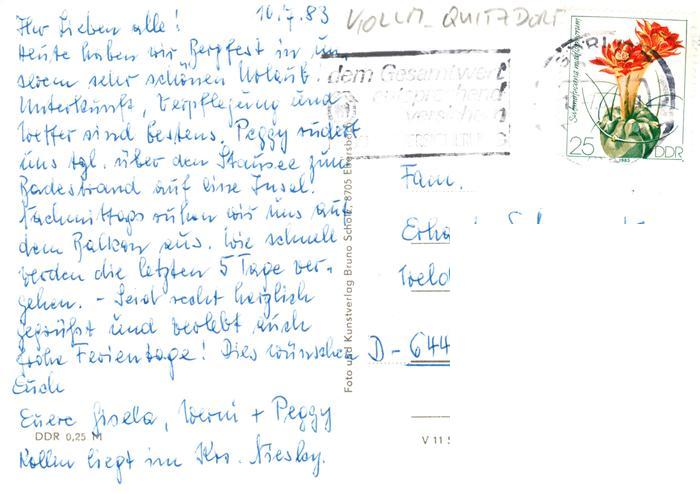 10.7.83
Ihr Lieben alle!
Heute haben wir Bergfest in un-
serem sehr schönen Urlaub.
Unterkunft, Verpflegung und
Wetter sind bestens. Peggy rudert
uns tgl. über den Stausee zum
Badestrand auf eine Insel.
Nachmittags ruhen wir uns auf
dem Balkon aus. Wie schnell
werden die letzten 5 Tage ver-
gehen. – Seid recht herzlich
gegrüßt und verlebt auch
frohe Ferientage! Dies wünschen
Euch
Euere Gisela, Werni + Peggy
DDR 0,25 M
Kollm liegt im Krs. Niesky.
KOLLM - QUITZDORF
dem Gesamtwert
entsprechend
versichern
25 DDR
1983
Foto und Kunstverlag Bruno Scholz, 8705 Ebersb
Fam.
Erha
Weld
D - 644
V 11 5